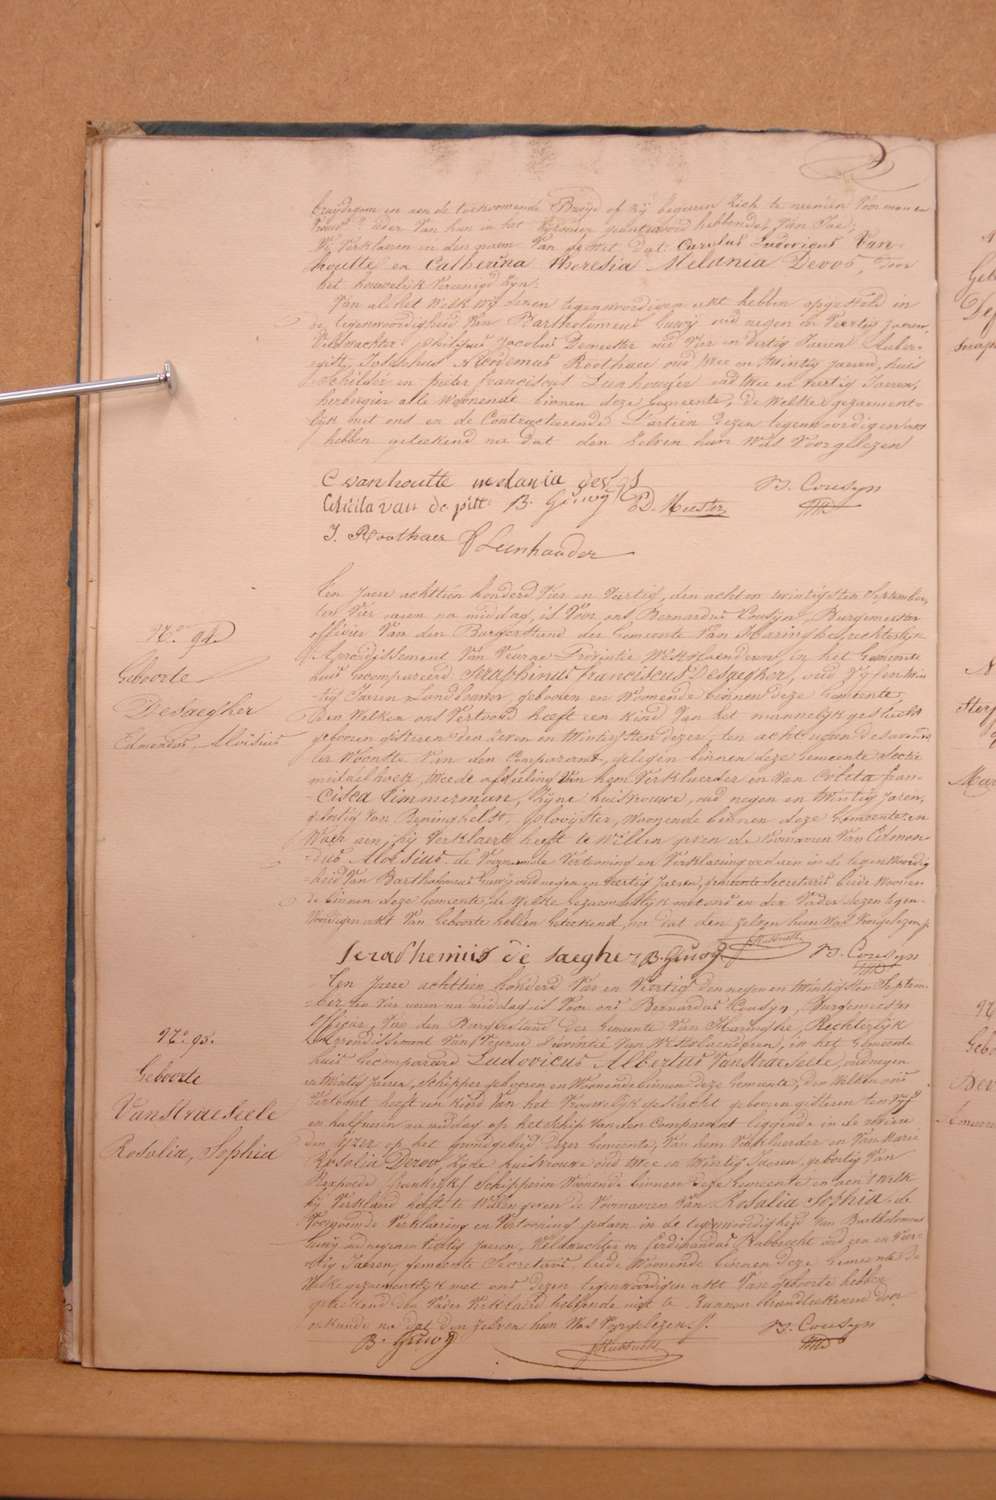 bruydegom en aen de toekomende Bruyd of zij begeren zich te nemen voor man en
vrouw? ieder van hun in het byzonder geantwoord hebbende: Van Jae;
Wij Verklaeren in den naem van de Wet dat Carolus Ludovicus Van-
houtte en Catherina Theresia Melania Devos, door
het houwelijk vereenigd zijn.
Van al het welk wij dezen tegenwoordigen akt hebben opgesteld in
de tegenwoordigheid van Bartholomeus Guwij oud negen en Veertig jaeren,
Veldwachter, Philippus Jacobus Demeester oud Vier en dertig Jaeren
Josephus Roothaer oud twee en twintig jaeren, huis
schilder en pieter franciscus Leenhouder oud twee en veertig Jaeren,
herbergier alle Woonende binnen deze Gemeente, de Welke gezaement-
lijk met ons en de Contracteerende Partien dezen tegenwoordigen akt
hebben geteekend na dat den zelven hun Was Voorgelezen
C vanhoutte melania devos B. Cousyn
van de pitte B. Guwij P D. Meester
J. Roothaer P Leenhouder
N.º 94.
Geboorte
DeSaegher
Edmondus, Aloisius
Ten Jaere achttien honderd Vier en Veertig, den acht en twintigsten September,
ten Vier uren na middag, is Voor ons Bernardus Cousyn, Burgemeester
officier Van den Burgerstand der Gemeente Van Haringhe, rechterlijk
Arrondissement Van Veurne Provintie Westvlaenderen, in het Gemeente
huis Gecompareerd Seraphinus Franciscus DeSaegher, oud Vijf en twin-
tig Jaeren Landbouwer, geboren en Woonende binnen deze Gemeente,
Den Welken ons Vertoond heeft een kind Van het mannelijk geslacht
geboren gisteren den zeven en twintigsten dezer, ten acht uren des avonds
ter Woonste Van den Comparant, gelegen binnen deze Gemeente Sectie
Van hem Verklaerder en van Coleta fran-
cisca Timmerman, Zijne huisvrouwe, oud negen en twintig Jaren,
geboortig Van Reninghelst, Woonende binnen deze Gemeente en
Waer aen hij Verklaert heeft te Willen geven de Voornamen Van Edmon-
dus Aloisius. de Voornoemde Vertooning en Verklaering gedaen in de tegenwoordig
heid Van Bartholomeus Guwij oud negen en Veertig Jaeren, gemeente Secretaris beide Woonen-
de binnen deze Gemeente, de Welke Gezaementlijk met ons en den Vader dezen tegen-
woordigen akt Van Geboorte hebben Geteekend, na dat den zelven hun Was Voorgelezen
Serafhemus de saegher B. Guwij Rubbrecht B. Cousyn
N.º 95.
Geboorte
VanStraeseele
Rosalia, Sophia
Ten Jaere achttien honderd Vier en Veertig den negen en twintigsten Septem-
ber ten Vier uren na middag is Voor ons Bernardus Cousyn, Burgemeester
officier Van den Burgerstand der Gemeente Van Haringhe, Rechterlijk
Arrondissement Van Veurne Provintie Van Westvlaenderen, in het Gemeente
huis Gecompareerd Ludovicus Albertus VanStraeseele, oud negen
en twintig Jaeren, Schipper geboren en Woonende binnen deze Gemeente, den Welken ons
Vertoont heeft een kind Van het Vrouwelijk geslacht geboren gisteren ten Vijf
en half uren na middag op het Schip Van den Comparant liggende in de riviere
den Yzer op het Grondgebied dezer Gemeente, Van hem Verklaerder en Van Marie
Rosalia Deroo, zijne huisvrouwe oud twee en twintig Jaeren, geboortig Van
Rexpoede (frankrijk) Schipperin Woonende binnen deze Gemeente en aen 't Welk
hij Verklaerd heeft te Willen geven de Voornamen Van Rosalia Sophia. de
Voornoemde Verklaering en Vertooning gedaen in de tegenwoordigheid Van Bartholomeus
Guwij oud negen en Veertig Jaeren, Veldwachter en Ferdinandus Rubbrecht oud een en Veer-
tig Jaeren, gemeente Secretaris, beide Woonende binnen deze Gemeente de
Welke gezaementlijk met ons dezen tegenwoordigen akt Van geboorte hebben
geteekend, den Vader Verklaerd hebbende niet te Kunnen handteekenen door
onkunde na dat den zelven hun Was Voorgelezen.
B. Guwij Rubbrecht B. Cousyn